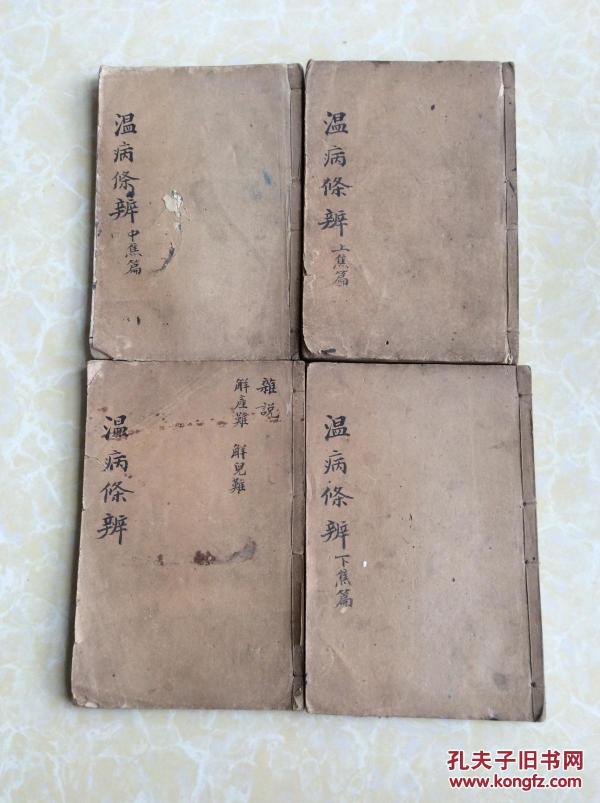 温病條辨
上焦篇
温病條辨
中焦篇
温病條辨
下焦篇
雜説
解產難 解兒難
温病條辨
孔夫子旧书网
www.kongfz.com